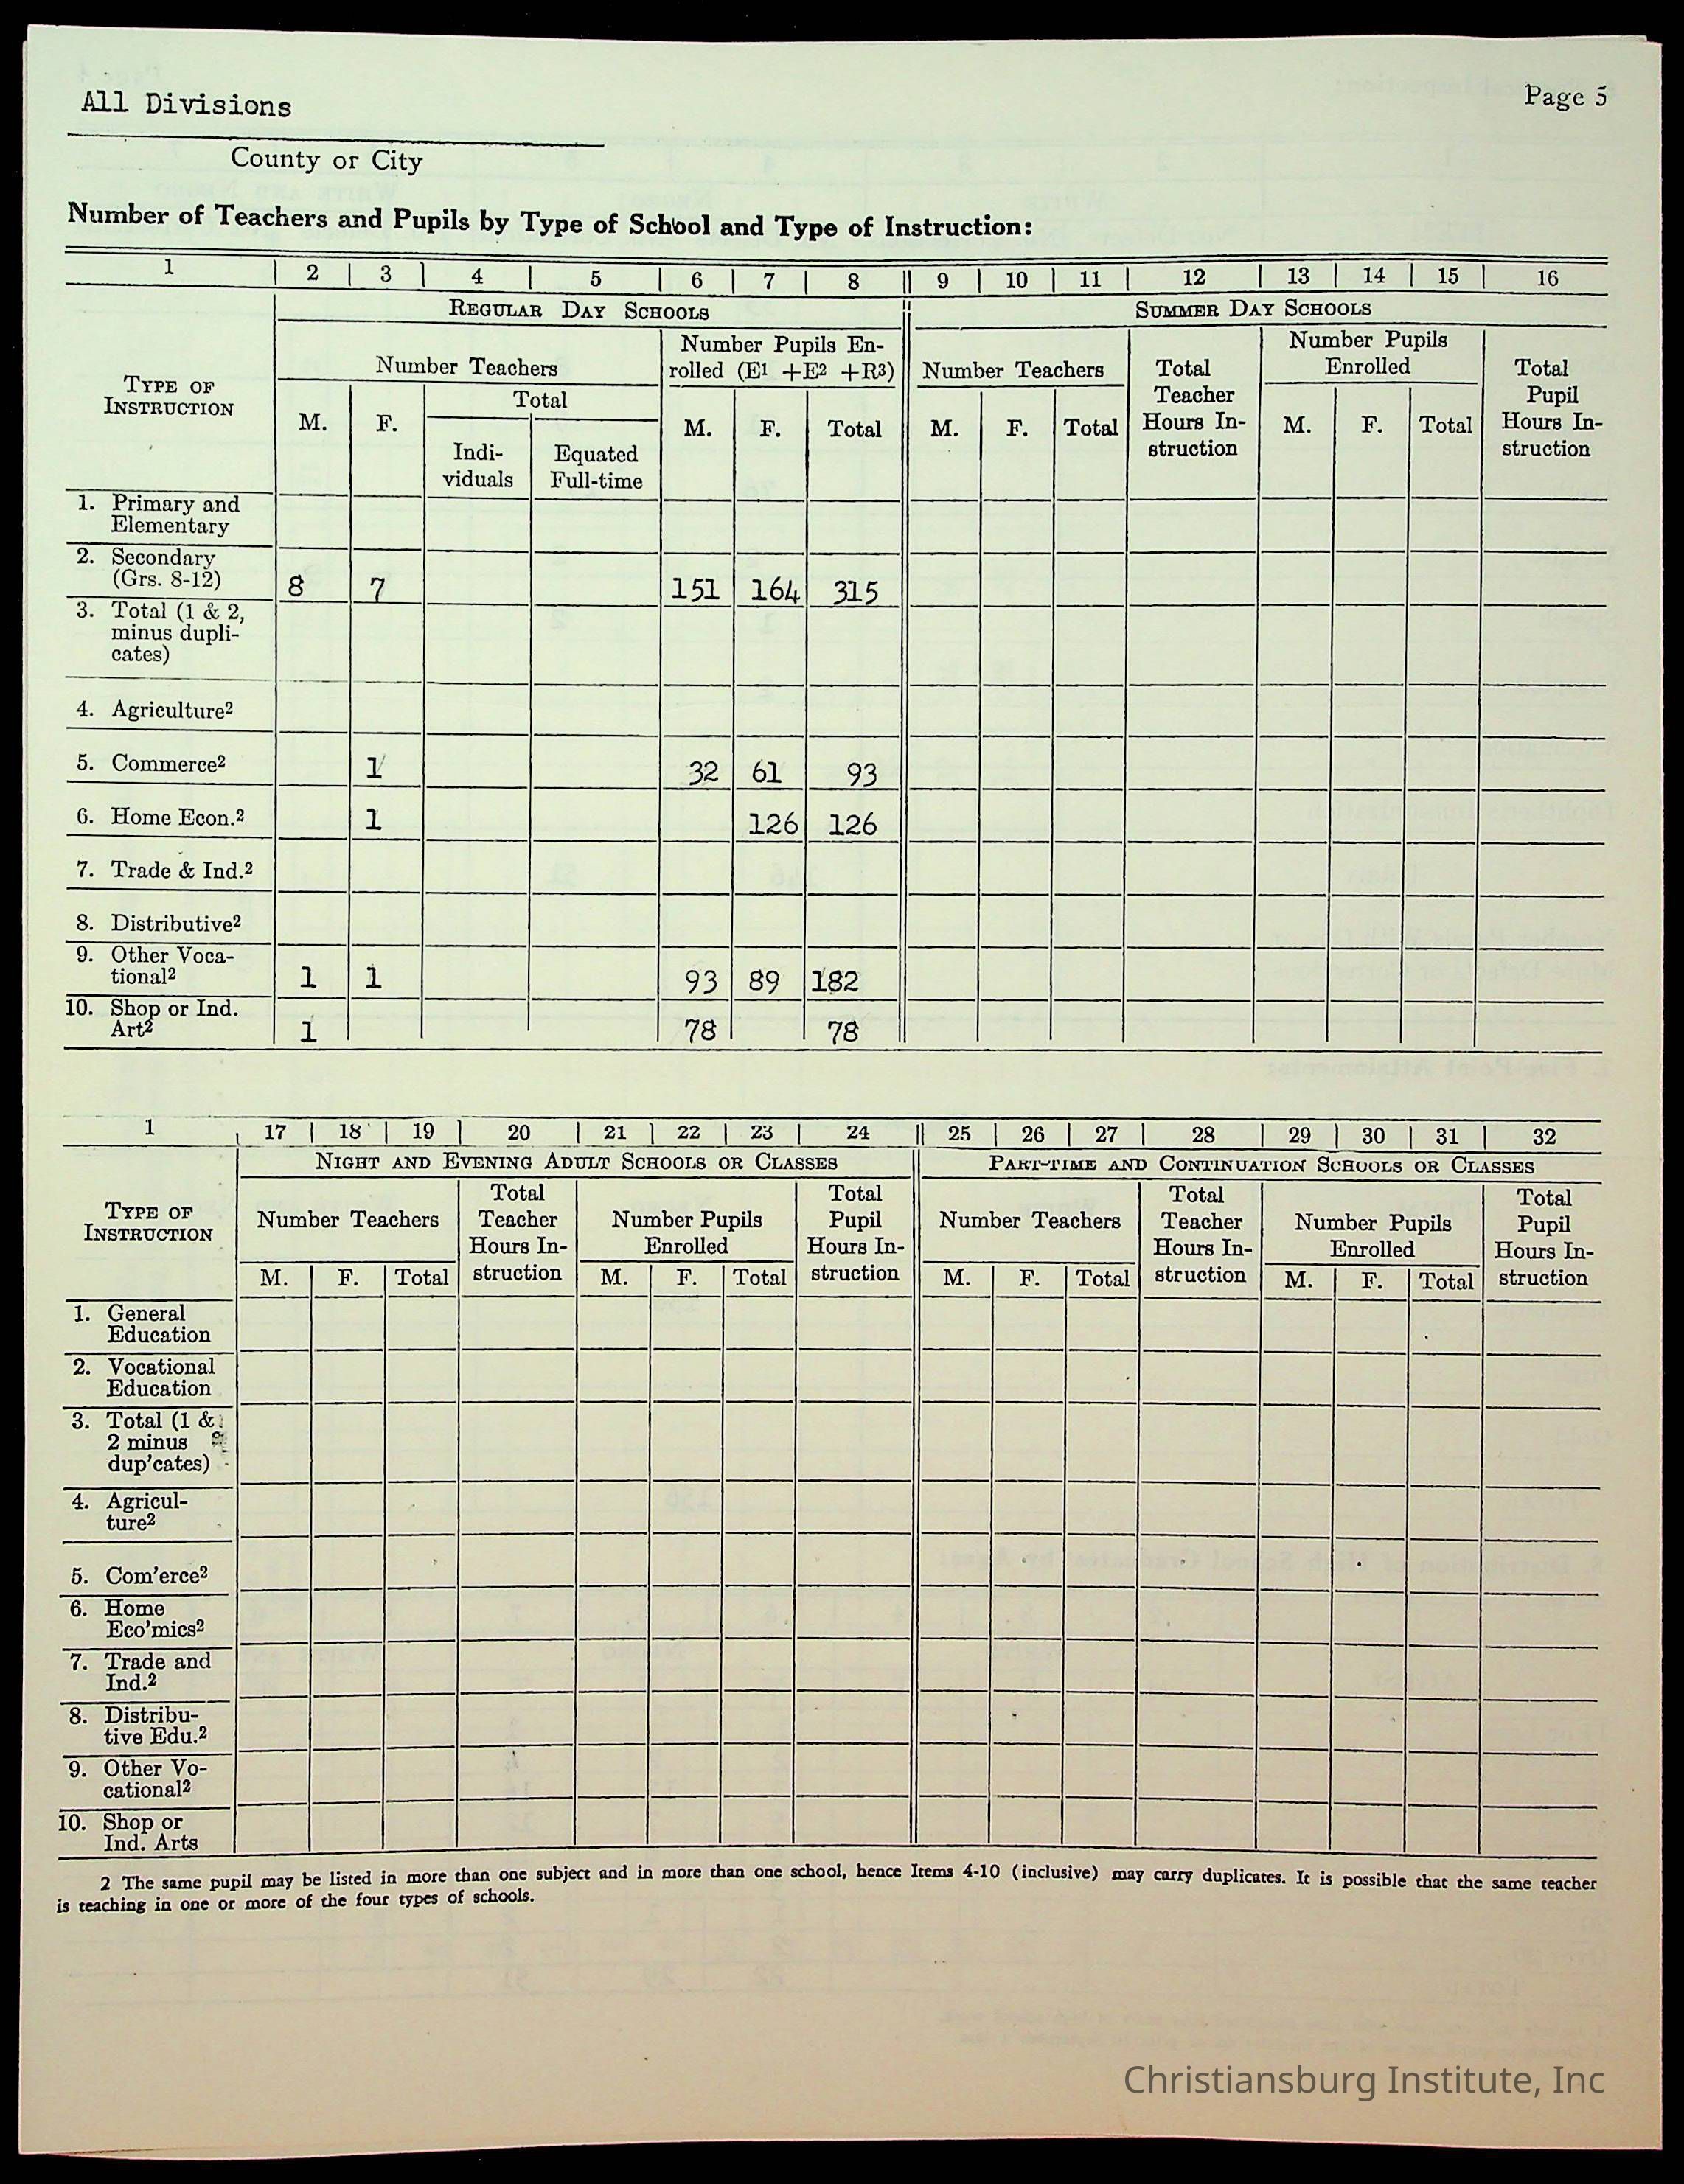 All Divisions
Page 5
County or City
Number of Teachers and Pupils by Type of School and Type of Instruction:
1 2 3 4 5 6 7 8 9 10 11 12 13 14 15 16
TYPE OF INSTRUCTION
REGULAR DAY SCHOOLS
SUMMER DAY SCHOOLS
Number Teachers
Number Pupils En-
rolled (E1 +E2 +R3)
Number Teachers
Total
Teacher
Hours In-
struction
Number Pupils
Enrolled
Total
Pupil
Hours In-
struction
M. F. Total
Indi-
viduals
Equated
Full-time
M. F. Total
M. F. Total
M. F. Total
1. Primary and
Elementary
2. Secondary
(Grs. 8-12) 8 7 151 164 315
3. Total (1 & 2,
minus dupli-
cates)
4. Agriculture2
5. Commerce2 1 32 61 93
6. Home Econ.2 1 126 126
7. Trade & Ind.2
8. Distributive2
9. Other Voca-
tional2 1 1 93 89 182
10. Shop or Ind.
Art2 1 78 78
1 17 18 19 20 21 22 23 24 25 26 27 28 29 30 31 32
TYPE OF
INSTRUCTION
NIGHT AND EVENING ADULT SCHOOLS OR CLASSES
PART-TIME AND CONTINUATION SCHOOLS OR CLASSES
Number Teachers
Total
Teacher
Hours In-
struction
Number Pupils
Enrolled
Total
Pupil
Hours In-
struction
Number Teachers
Total
Teacher
Hours In-
struction
Number Pupils
Enrolled
Total
Pupil
Hours In-
struction
M. F. Total
M. F. Total
M. F. Total
M. F. Total
1. General
Education
2. Vocational
Education
3. Total (1 &
2 minus
dup'cates)
4. Agricul-
ture2
5. Com'erce2
6. Home
Eco'mics2
7. Trade and
Ind.2
8. Distribu-
tive Edu.2
9. Other Vo-
cational2
10. Shop or
Ind. Arts
2 The same pupil may be listed in more than one subject and in more than one school, hence Items 4-10 (inclusive) may carry duplicates. It is possible that the same teacher
is teaching in one or more of the four types of schools.
Christiansburg Institute, Inc